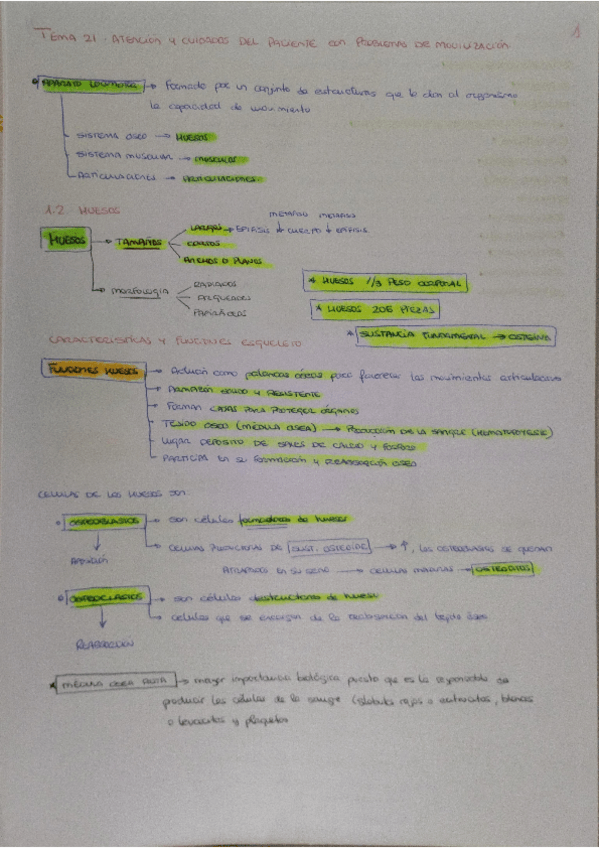 1
TEMA 21 - ATENCIÓN Y CUIDADOS DEL PACIENTE CON PROBLEMAS DE MOVILIZACIÓN
APARATO LOCOMOTOR → Formado por un conjunto de estructuras que le dan al organismo
la capacidad de movimiento
SISTEMA OSEO → HUESOS
SISTEMA MUSCULAR → MUSCULOS
ARTICULACIONES → ARTICULACIONES
1.2 HUESOS
METAFISIS METAFISIS
HUESOS → TAMAÑOS LARGOS → EPIFISIS CUERPO EPIFISIS
CORTOS
ANCHOS O PLANOS
MORFOLOGIA RADIADOS
ARQUEADOS
PAPIRACEOS
* HUESOS 1/3 PESO CORPORAL
* HUESOS 206 PIEZAS
* SUSTANCIA FUNDAMENTAL → OSTEINA
CARACTERISTICAS Y FUNCIONES ESQUELETO
FUNCIONES HUESOS → Actúan como palancas óseas para favorecer los movimientos articulatorios
ARMAZÓN SOLIDO Y RESISTENTE
FORMAN CAJAS PARA PROTEGER ÓRGANOS
TEJIDO OSEO (MÉDULA OSEA) → PRODUCCIÓN DE LA SANGRE (HEMATOPOYESIS)
LUGAR DEPÓSITO DE SALES DE CALCIO Y FOSFORO
PARTICIPA EN SU FORMACIÓN Y REABSORCIÓN OSEA
CELULAS DE LOS HUESOS SON:
OSTEOBLASTOS → son células formadoras de hueso
CELULAS PRODUCTORAS DE SUST. OSTEOIDE → ↑, LOS OSTEOBLASTOS SE QUEDAN
APOSICIÓN
ATRAPADOS EN SU SENO → CELULAS MADURAS → OSTEOCITOS
OSTEOCLASTOS → son células destructoras de hueso
células que se encargan de la reabsorción del tejido óseo
REABSORCIÓN
* MÉDULA OSEA ROJA → mayor importancia biológica puesto que es la responsable de
producir las células de la sangre (glóbulos rojos o eritrocitos, blancos
o leucocitos y plaquetas